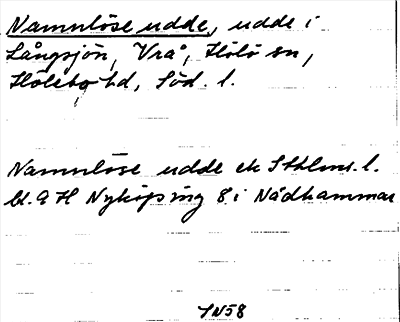 Namnlöse udde, udde i
Långsjön, Vrå, Hölö sn,
Hölebo hd, Söd. l.
Namnlöse udde ek Sthlms. l.
bl. 9 H Nyköping 8 i Nådhammar
IN58